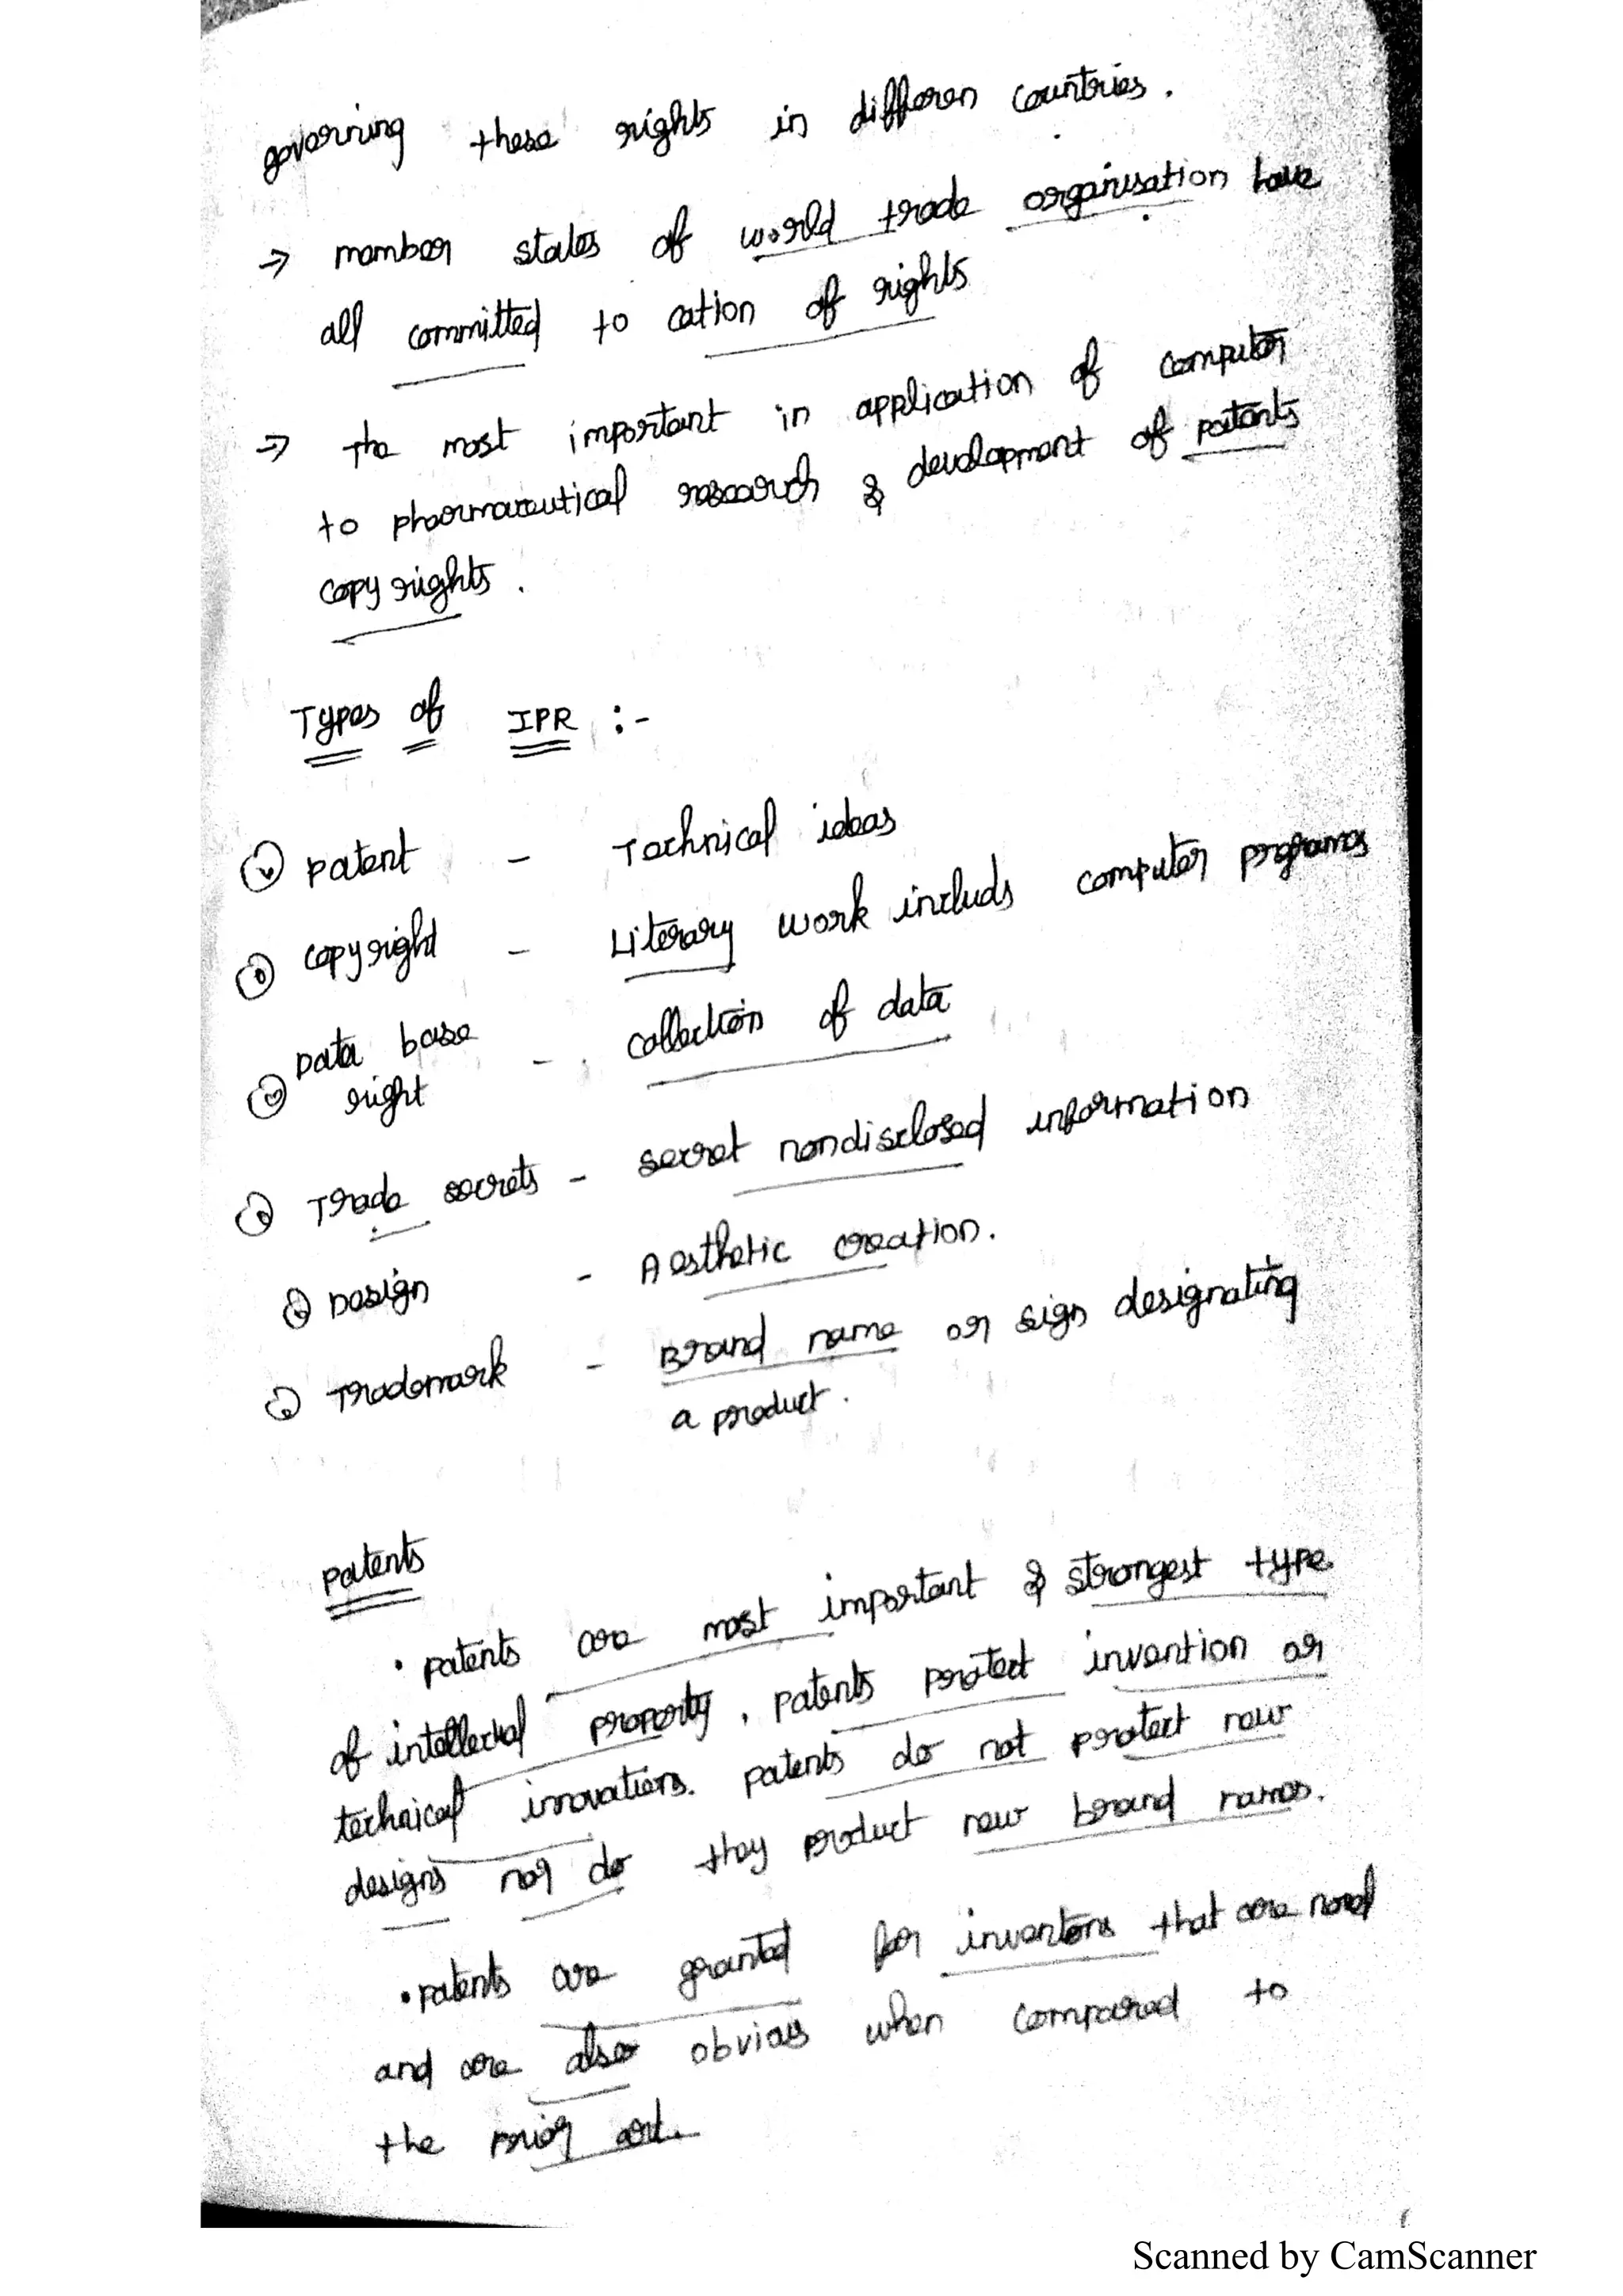 governing these rights in differen countries.
→ member states of world trade organisation have
all committed to cation of rights
→ the most important in application of computer
to pharmaceutical research & development of patents
copy rights.
Types of IPR :-
patent - Technical ideas
copyright - Literary work includs computer programs
Data base - collection of data
right
Trade secrets - secret nondisclosed information
Design - Aesthetic creation.
Trademark - Brand name or sign designating
a product.
patents
• patents are most important & strongest type
of intellectual property, patents protect invention or
technical innovations. patents do not protect new
designs nor do they product new brand names.
• patents are granted for inventions that are novel
and are also obvious when compared to
the prior art.
Scanned by CamScanner